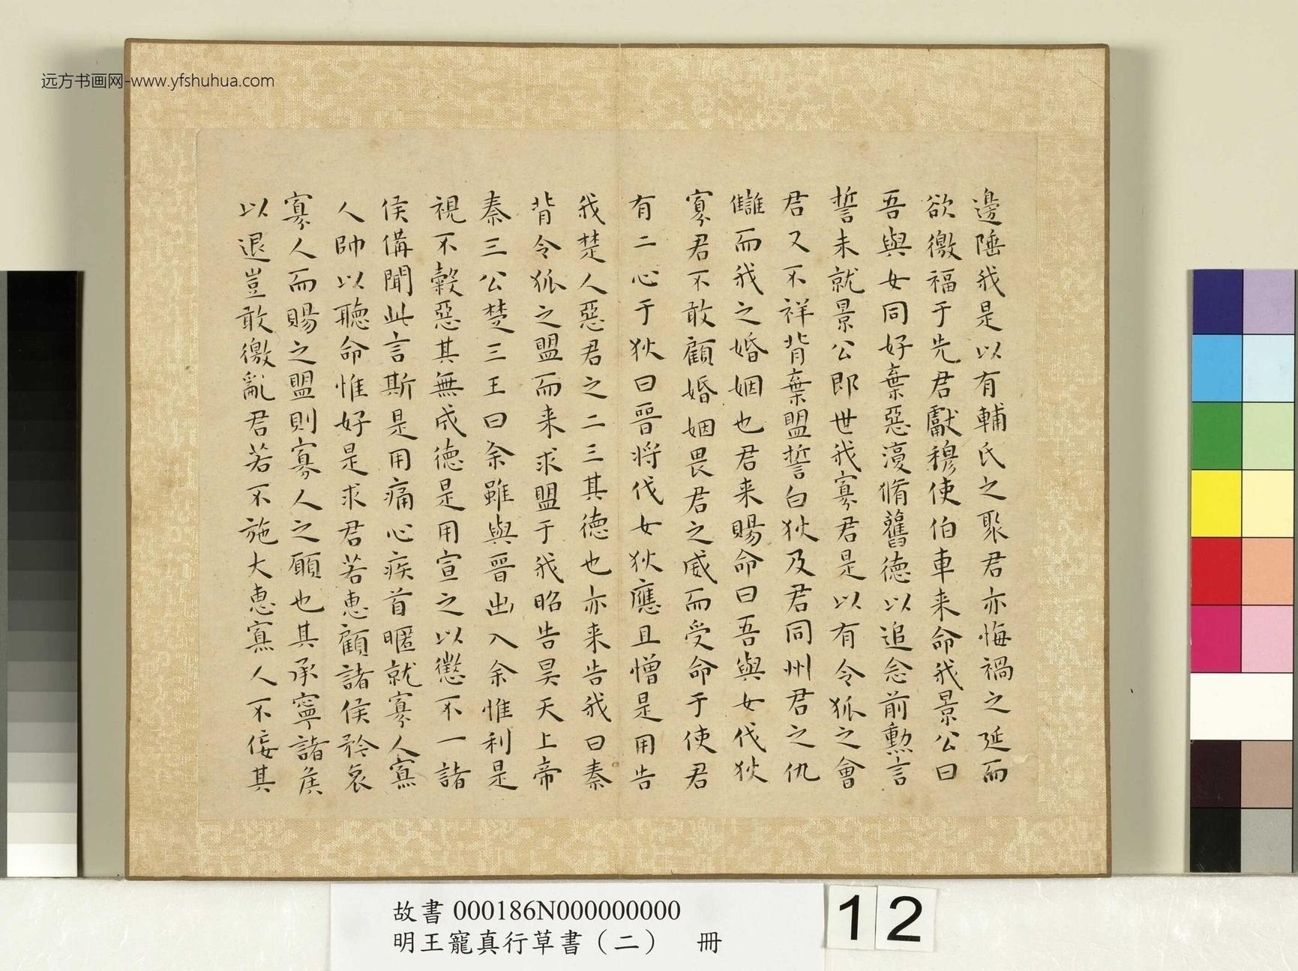 远方书画网-www.yfshuhua.com
邊陲我是以有輔氏之聚君亦悔禍之延而
欲徼福于先君獻穆使伯車来命我景公曰
吾與女同好棄惡復脩舊德以追念前勲言
誓未就景公即世我寡君是以有令狐之會
君又不祥背棄盟誓白狄及君同州君之仇
讎而我之婚姻也君来賜命曰吾與女伐狄
寡君不敢顧婚姻畏君之威而受命于使君
有二心于狄曰晉将伐女狄應且憎是用告
我楚人惡君之二三其德也亦来告我曰秦
背令狐之盟而来求盟于我昭告昊天上帝
秦三公楚三王曰余雖與晉出入余惟利是
視不穀惡其無成德是用宣之以懲不一諸
侯備聞此言斯是用痛心疾首暱就寡人寡
人帥以聽命惟好是求君若惠顧諸侯矜哀
寡人而賜之盟則寡人之願也其承寧諸侯
以退豈敢徼亂君若不施大惠寡人不佞其
故書 000186N000000000
明王寵真行草書（二） 冊
12